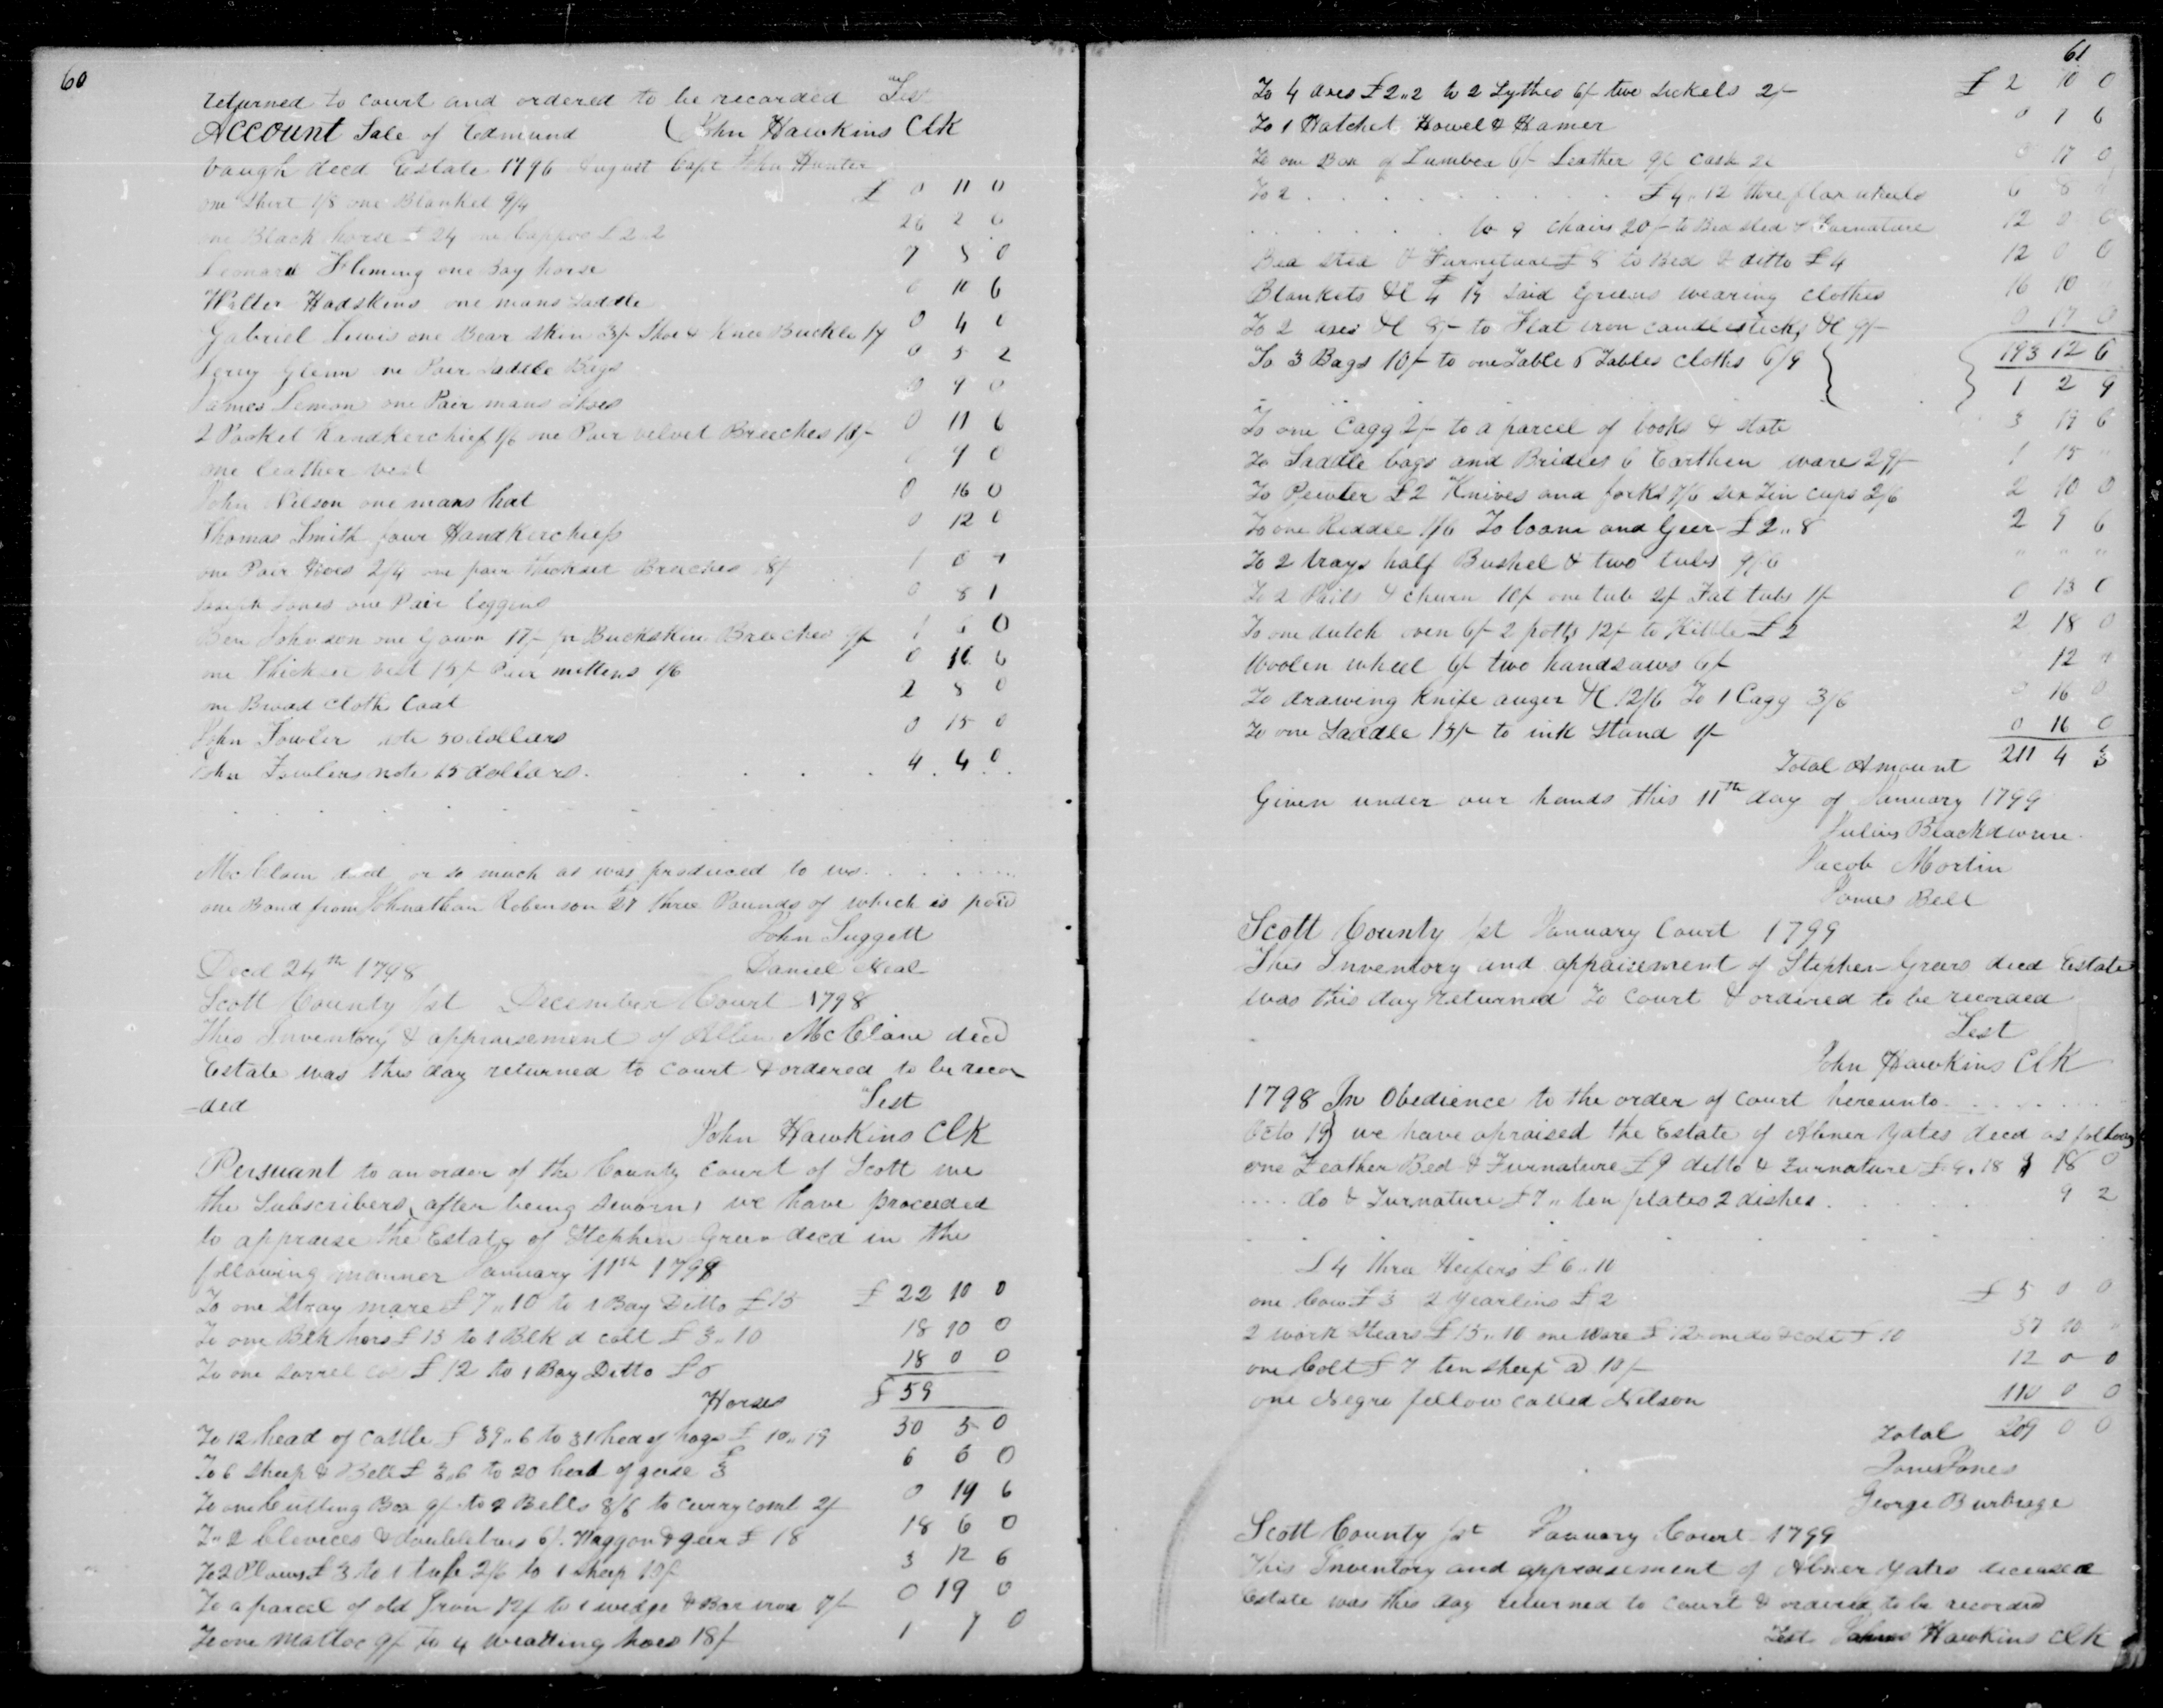 60
returned to court and ordered to be recorded Test
Account Sale of Edmund (John Hawkins Clk
Vaugh decd Estate 1796 August Capt John Hunter
one Shirt 1/8 one Blanket 9/4 £ 0 11 0
one Black horse £24 one Cappoo £2..2 26 2 0
Leonard Fleming one Bay horse 7 5 0
Walter Hadskins one mans Saddle 0 10 6
Gabriel Lewis one Bear Skin 3/- Shoe & Knee Buckle 1/ 0 4 0
Jerry Glenn one Pair Saddle Bags 0 5 2
James Lemon one Pair mans Shoes 0 9 0
2 Pocket Handkerchief 1/6 one Pair velvet Breeches 10/- 0 11 6
one leather vest 9 0
John Nelson one mans hat 0 16 0
Thomas Smith four Handkerchiefs 0 12 0
one Pair Hoes 2/4 one pair thickset Breeches 18/ 1 0 4
Joseph Jones one Pair leggins 0 8 1
Ben Johnson one Gown 17/- pr Buckskin Breeches 9/- 1 6 0
one thickset vest 15/- Pair mittens 1/6 0 16 6
one Broad Cloth Coat 2 8 0
John Fowler note 50 dollars 0 15 0
John Fowlers note 15 dollars. 4 4 0
McClain decd or so much as was produced to us
one Bond from Johnathan Robenson £7 three Pounds of which is paid
John Suggett
Decd 24th 1798 Daniel Neal
Scott County Sct December Court 1798
This Inventory & appraisement of Allen McClane decd
Estate was this day returned to court & ordered to be recor
-ded Test
John Hawkins Clk
Persuant to an order of the County court of Scott we
the Subscribers, after being sworn, we have proceeded
to appraise the Estate of Stephen Green decd in the
following manner January 11th 1799
To one Stray mare £7..10 to 1 Bay Ditto £15 £ 22 10 0
To one Blk hors £15 to 1 Blk d colt £3..10 18 10 0
To one Sorrel £12 to 1 Bay Ditto £6 18 0 0
Horses £ 59
To 12 head of Cattle £39..6 to 31 hed of hogs £10..19 50 5 0
To 6 Sheep & Bell £3..6 to 20 head of geese £3 6 6 0
To one Cutting Box 9/- to 2 Bells 8/6 to Currycomb 2/ 0 19 6
To 2 Clevices & doubletrees 6/. Waggon & geer £18 18 6 0
To 2 Plows £3 to 1 tub 2/6 to 1 Sheep 10/ 3 12 6
To a parcel of old Iron 12/ to 1 wedge & Bar iron 7/- 0 19 0
To one Mattoc 9/ to 4 weading hoes 18/ 1 7 0
61
To 4 axes £2..2 to 2 Sythes 6/ two Sickels 2/- £ 2 10 0
To 1 Hatchet Howel & Hamer 0 7 6
To one Box of Lumber 6/- Leather 9/ cask 2/ 0 17 0
To 2 £4..12 three flax wheels 6 8
to 9 chairs 20/- to Bedsted & Furnature 12 0 0
Bed Sted & Furniture £8 to Bed & ditto £4 12 0 0
Blankets &c £4 14 Said Greens wearing clothes 16 10
To 2 axes &c 8/- to Flat iron candlesticks &c 9/- 0 17 0
193 12 6
To 3 Bags 10/- to one Table 5 Tables Cloths 6/9 } } 1 2 9
To one Cagg 2/- to a parcel of books & slate 3 19 6
To Saddle bags and Bridles 6 Earthen ware 29/- 1 15
To Pewter £2 Knives and forks 7/6 six Tin cups 2/6 2 10 0
To one Reddle 1/6 To loome and Geer £2..8 2 9 6
To 2 trays half Bushel & two tubs 9/6 " " "
To 2 Pails & churn 10/ one tub 2/ Fat tubs 1/- 0 13 0
To one dutch oven 6/- 2 potts 12/- to Kittle £2 2 18 0
Woolen wheel 6/- two handsaws 6/- 12
To drawing knife auger &c 12/6 To 1 Cagg 3/6 0 16 0
To one Saddle 15/- to ink Stand 1/- 0 16 0
Total Amount 211 4 3
Given under our hands this 11th day of January 1799
Julius Blackdourn
Jacob Martin
James Bell
Scott County Sct January Court 1799
This Inventory and appraisement of Stephen Greens decd Estate
was this day returned to Court & ordered to be recorded
Test
John Hawkins Clk
1798 In Obedience to the order of court hereunto
Octo 19} we have apraised the Estate of Abner Yates decd as follows
one Feather Bed & Furnature £9 ditto & Furnature £9..18 18 0
do & Furnature £7.. ten plates 2 dishes 9 2
£4 three Heifers £6..10
one Cow £3 2 yearlins £2 £ 5 0 0
2 work Stears £15..10 one Mare £12 one do & colt £10 37 10
one Colt £7 ten sheep @ 10/- 12 0 0
one Negro fellow called Nelson 110 0 0
Total 209 0 0
James Jones
George Burbrage
Scott County Sct January Court 1799
This Inventory and appraisement of Abner Yates deceased
Estate was this day returned to court & ordered to be recorded
Test John Hawkins Clk